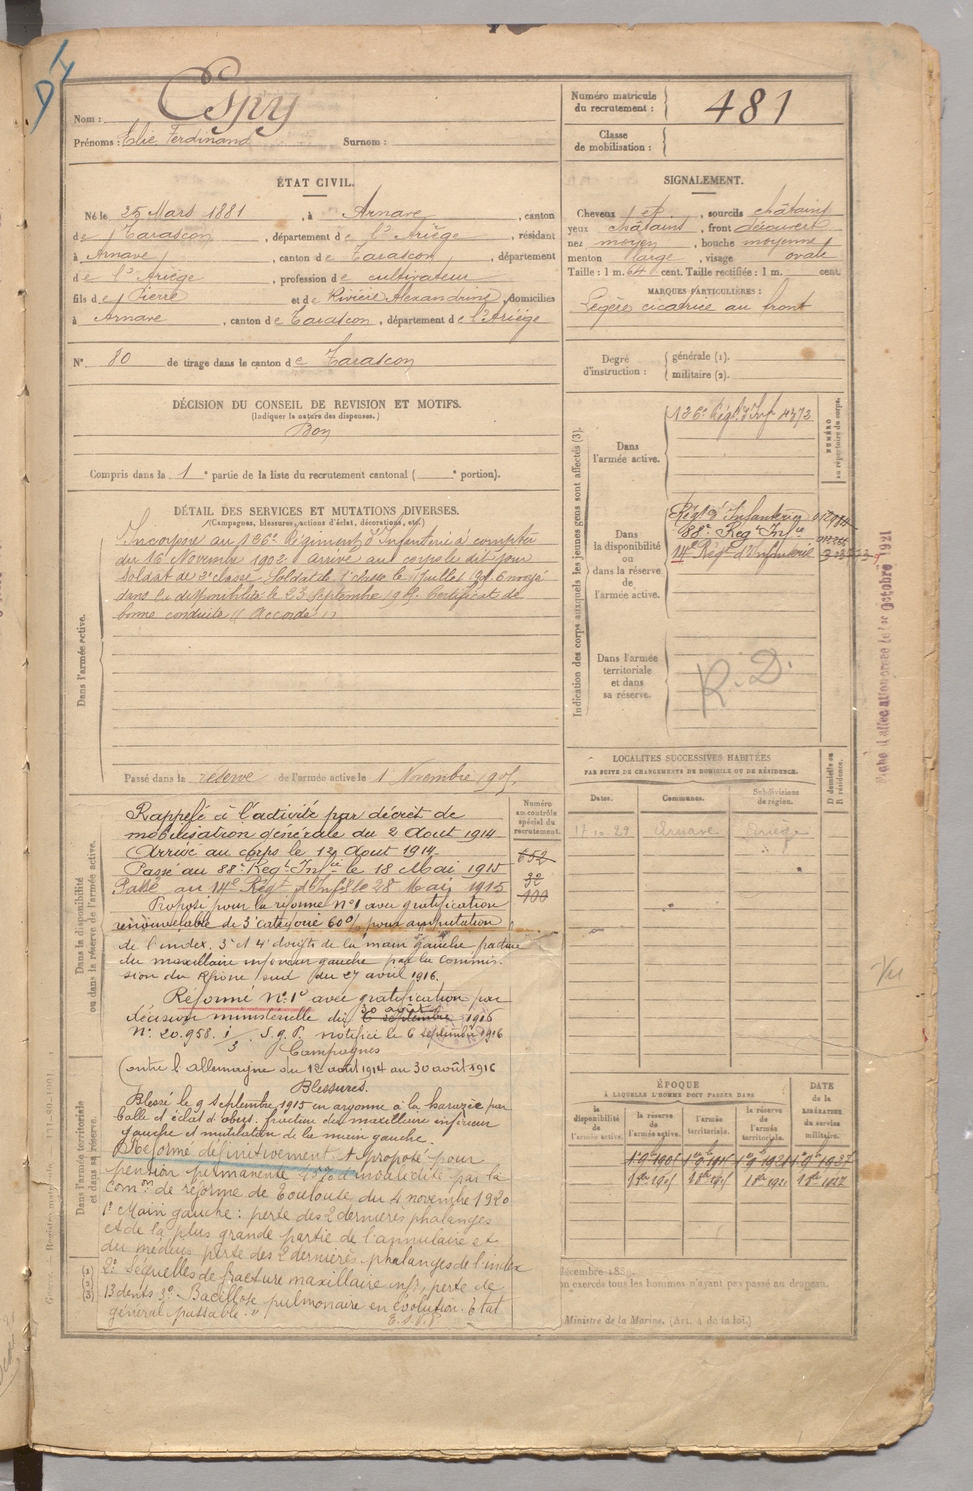 Nom : Espy
Prénoms : Elie Ferdinand Surnom :
Numéro matricule du recrutement : 481
Classe de mobilisation :
ÉTAT CIVIL.
Né le 25 Mars 1881, à Arnave, canton
de Tarascon, département de l'Ariège, résidant
à Arnave, canton de Tarascon, département
de l'Ariège, profession de cultivateur
fils de Pierre et de Rivière Alexandrine, domiciliés
à Arnave, canton de Tarascon, département de l'Ariège
N° 80 de tirage dans le canton de Tarascon
SIGNALEMENT.
Cheveux et, sourcils châtains
yeux châtains, front découvert
nez moyen, bouche moyenne
menton large, visage ovale
Taille : 1 m. 64 cent. Taille rectifiée : 1 m. cent.
MARQUES PARTICULIÈRES :
Légère cicatrice au front
Degré d'instruction : générale (1). militaire (2).
DÉCISION DU CONSEIL DE REVISION ET MOTIFS.
(Indiquer la nature des dispenses.)
Bon
Compris dans la 1e partie de la liste du recrutement cantonal ( e portion).
DÉTAIL DES SERVICES ET MUTATIONS DIVERSES.
(Campagnes, blessures, actions d'éclat, décorations, etc.)
Dans l'armée active.
Incorporé au 126e Régiment d'Infanterie à compter
du 16 Novembre 1902. Arrivé au corps le dit jour
Soldat de 2e classe. Soldat de 1e classe le Juillet Envoyé
dans la disponibilité le 23 Septembre 1905. Certificat de
bonne conduite "Accordé".
Passé dans la réserve de l'armée active le 1 Novembre 1905.
Indication des corps auxquels les jeunes gens sont affectés (3).
NUMÉRO au répertoire du corps.
Dans l'armée active.
126e Régt d'Inf 4372
Dans la disponibilité ou dans la réserve de l'armée active.
Régt d'Infanterie
88e Régt Infie
14e Régt d'Infanterie
Dans l'armée territoriale et dans sa réserve.
R. D.
Dans la disponibilité ou dans la réserve de l'armée active.
Numéro au contrôle spécial du recrutement.
Rappelé à l'activité par décret de
mobilisation générale du 2 Août 1914
Arrivé au corps le 12 Août 1914.
Passé au 88e Régt Infie le 18 Mai 1915
Passé au 14e Régt d'Infie le 28 Mai 1915
652
32
100
Proposé pour la réforme N°1 avec gratification
renouvelable de 3e catégorie 60% pour amputation
de l'index, 3e et 4e doigts de la main gauche, fracture
du maxillaire inférieur gauche par la commis-
sion du Rhône sud du 27 avril 1916.
Réformé N°1 avec gratification par
décision ministérielle du 30 août 1916
N° 20.958. S.G.P. notifiée le 6 septembre 1916
Campagnes
Contre l'allemagne du 12 août 1914 au 30 août 1916
Blessures.
Blessé le 9 septembre 1915 en argonne à la harazée par
balle et éclats d'obus. fracture du maxillaire inférieur
gauche et mutilation de la main gauche.
Dans l'armée territoriale et dans sa réserve.
Réformé définitivement et proposé pour
pension permanente d'invalidité par la
Comon de réforme de Toulouse du 4 novembre 1920
1° Main gauche : perte des 2 dernières phalanges
et de la plus grande partie de l'annulaire et
du médius perte des 2 dernières phalanges de l'index
2° Séquelles de fracture maxillaire infr, perte de
13 dents 3° Bacillose pulmonaire en évolution. Etat
général passable."
LOCALITÉS SUCCESSIVES HABITÉES
PAR SUITE DE CHANGEMENTS DE DOMICILE OU DE RÉSIDENCE.
Dates. Communes. Subdivisions de région. D domicile ou R résidence.
17.10.29 Arnave Ariège
ÉPOQUE
À LAQUELLE L'HOMME DOIT PASSER DANS
DATE de la LIBÉRATION du service militaire.
la disponibilité de l'armée active. la réserve de l'armée active. l'armée territoriale. la réserve de l'armée territoriale.
on exercés tous les hommes n'ayant pas passé au drapeau.
Ministre de la Marine. (Art. 4 de la loi.)
Octobre 1921
Vu